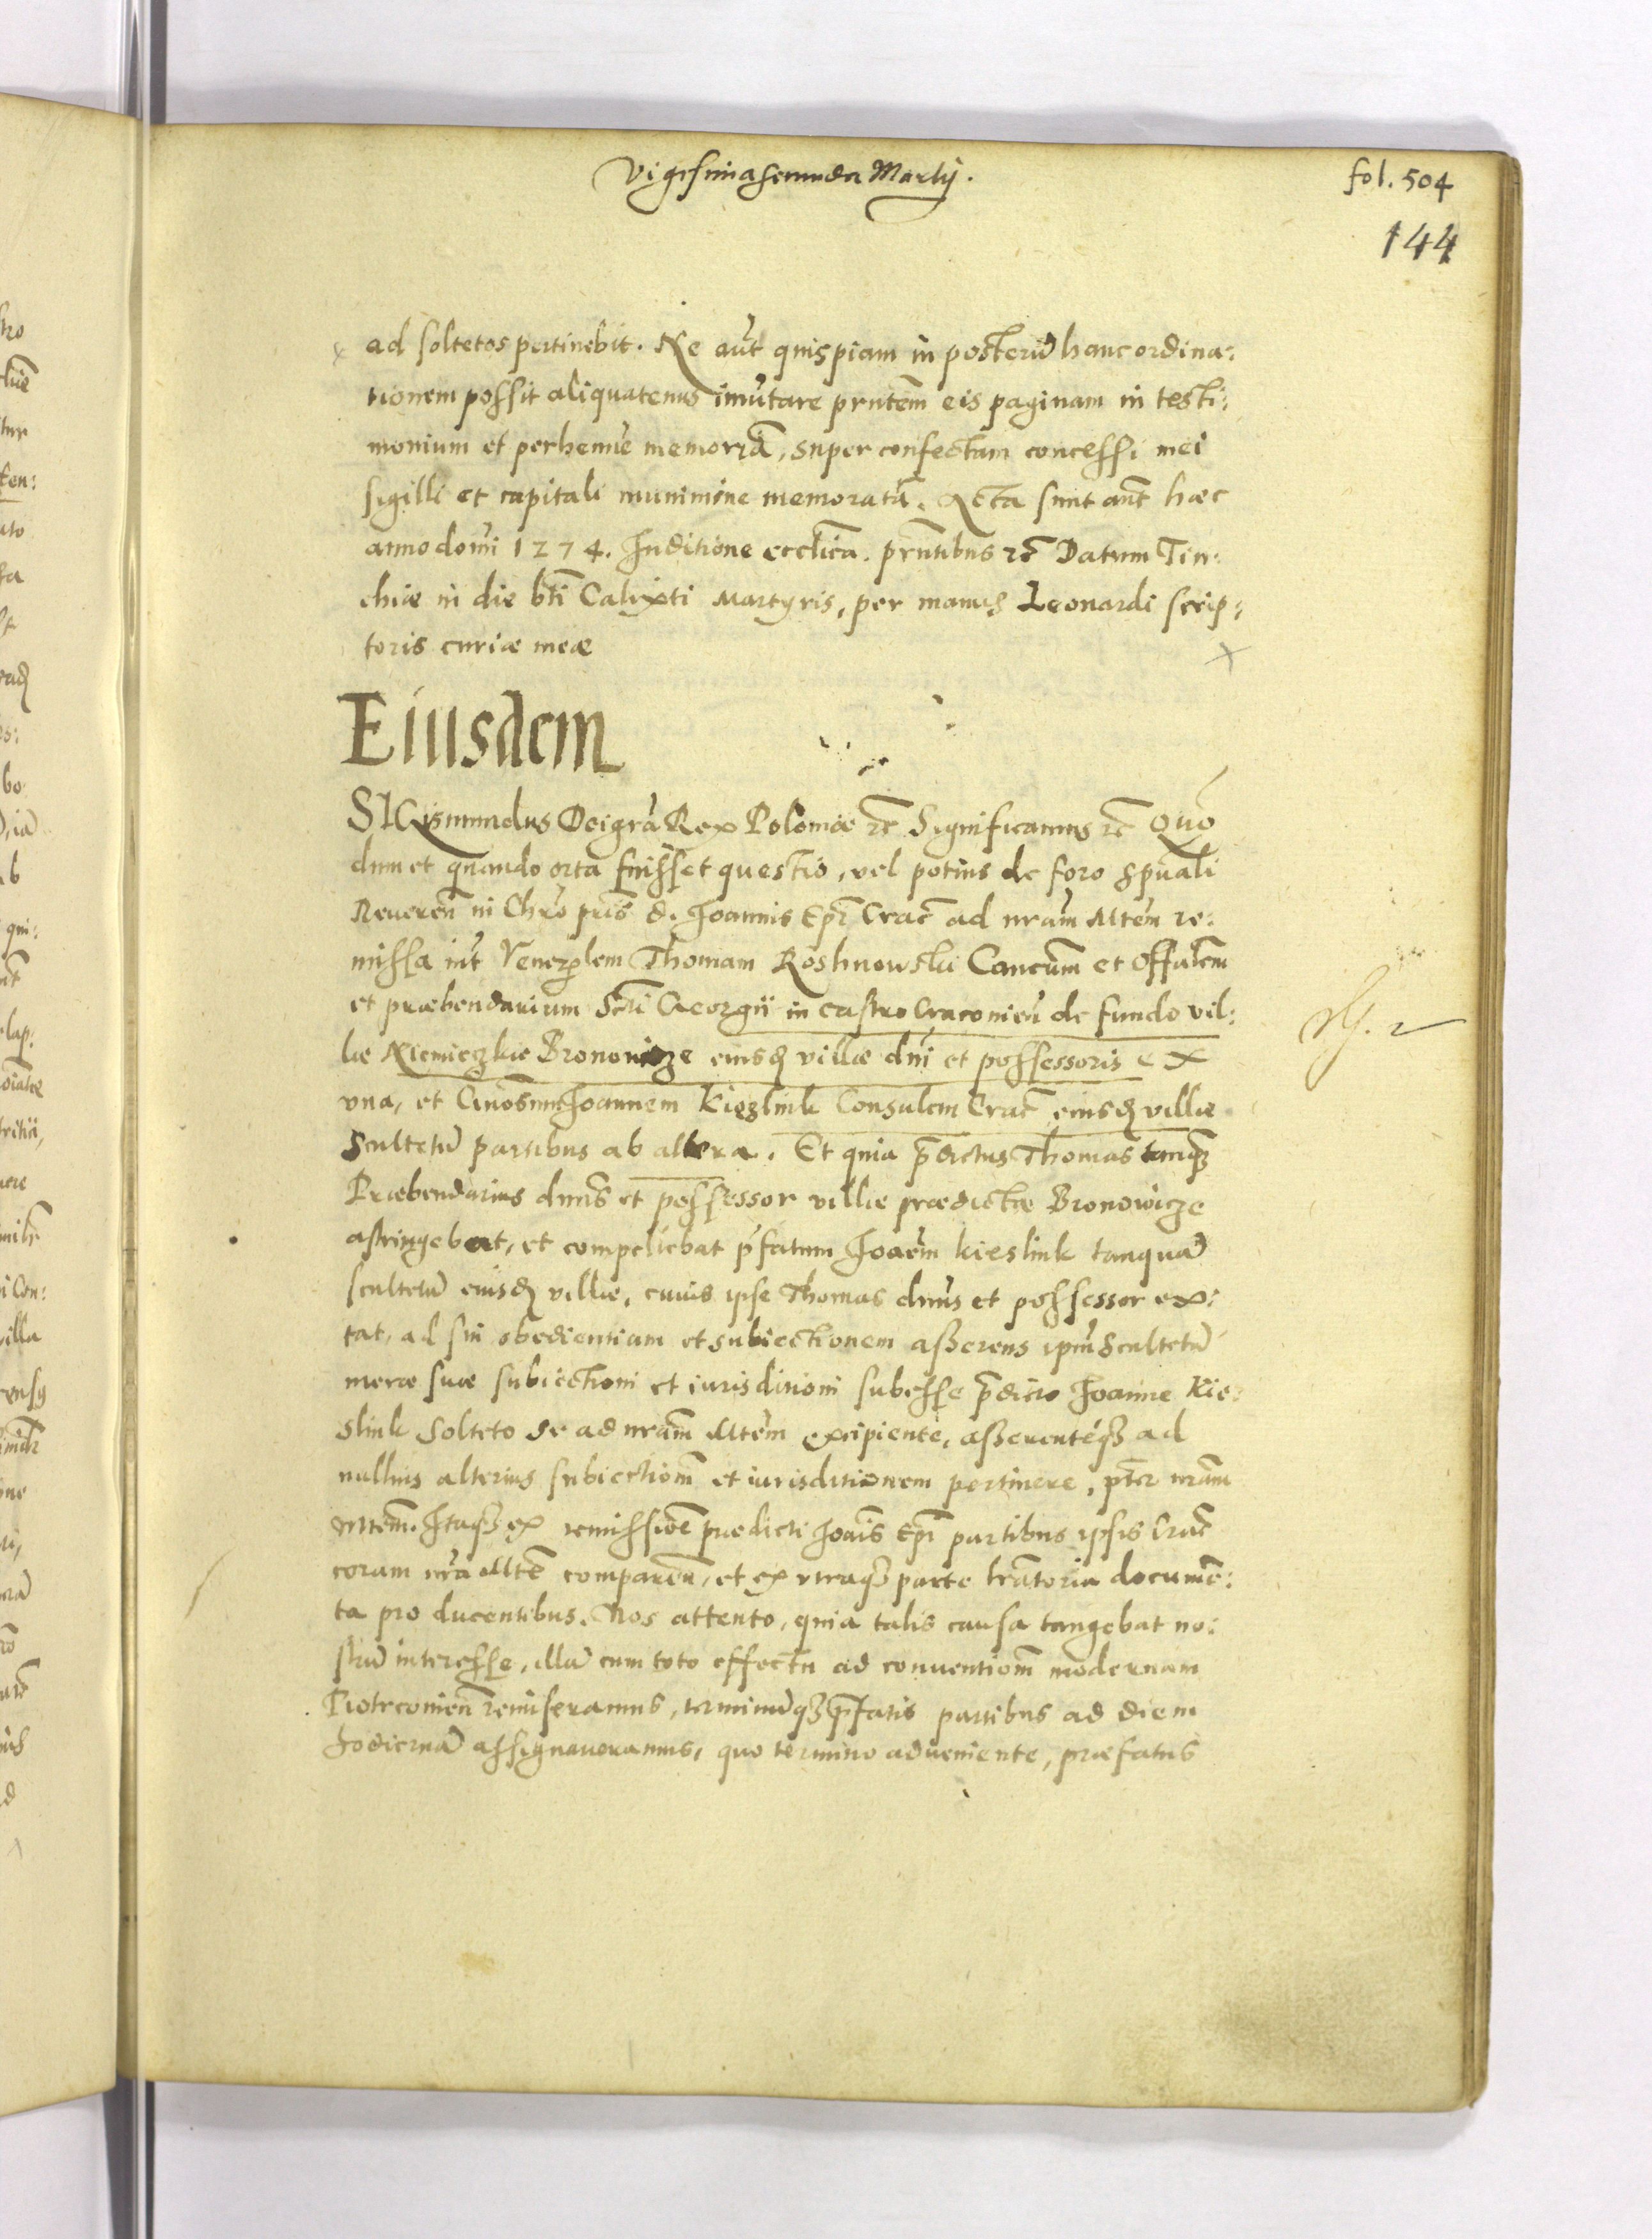 Vigesima secunda Martij.
fol. 504
144
ad soltetos pertinebit. Ne aūt quispiam in posterū hanc ordina:
tionem possit aliquatenus imūtare prntem̄ eis paginam in testi:
monium et perhenne memoriā, super confectam concessi mei
sigilli et capituli munimine memoratū. Acta sunt aut̄ haec
anno domī 1274. Inditione eccl̄ica. prn̄tibus et̄c Datum Tin:
chiæ in die bt̄i Calixti Martyris, per manus Leonardi scrip:
toris curiæ meæ
Eiusdem
SIGismundus Dei gr̄a Rex Poloniæ et̄c Significamus et̄c Quō
dum et quando orta fuisset questio, vel potius de foro spūali
Reueren̄ in Chrō pr̄is d. Joannis Ep̄i Crac̄ ad nrām Mtēm re:
missa int̄ Venerlem Thomam Roshnowski Cancūm et Offalem
et præbendarium Sct̄i Georgii in castro Cracovien̄ de fundo vil:
læ Niemieczkie Bronowicze eiusd villæ dnī et possessoris ex
vna, et Joannem Kieszlink Consulem Crac̄ eiusd villæ
Scultetū partibus ab altera. Et quia p̄dictus Thomas tanqz
Præbendarius dnus et possessor villæ prædictæ Bronowicze
astringebat, et compellebat p̄fatum Joaēm Kieslink tanquā
scultetū eiusd villæ, cuius ipse Thomas dnūs et possessor ex:
tat, ad sui obedientiam et subiectionem asserens ipm̄ Scultetū
meræ suæ subiectioni et iurisditioni subesse p̄dicto Joanne Kie:
slink Solteto se ad nrām Mtēm excipiente, asserenteqz ad
nullius alterius subiectionm̄ et iurisditionem pertinere, pt̄er nrām
Mtem̄. Itaqz ex remissiōe prædicti Joāis Ep̄i partibus ipsis Crac̄
coram nrā Mtē comparēn, et ex vtraqz parte lrātoria documē:
ta pro ducentibus. Nos attento, quia talis causa tangebat no:
strū interesse, illā cum toto effectu ad conuentionm̄ modernam
Piotrcovien̄ remiseramus, terminūqz p̄fatis partibus ad diem
hodiernā assignaueramus, quo termino adueniente, præfatus